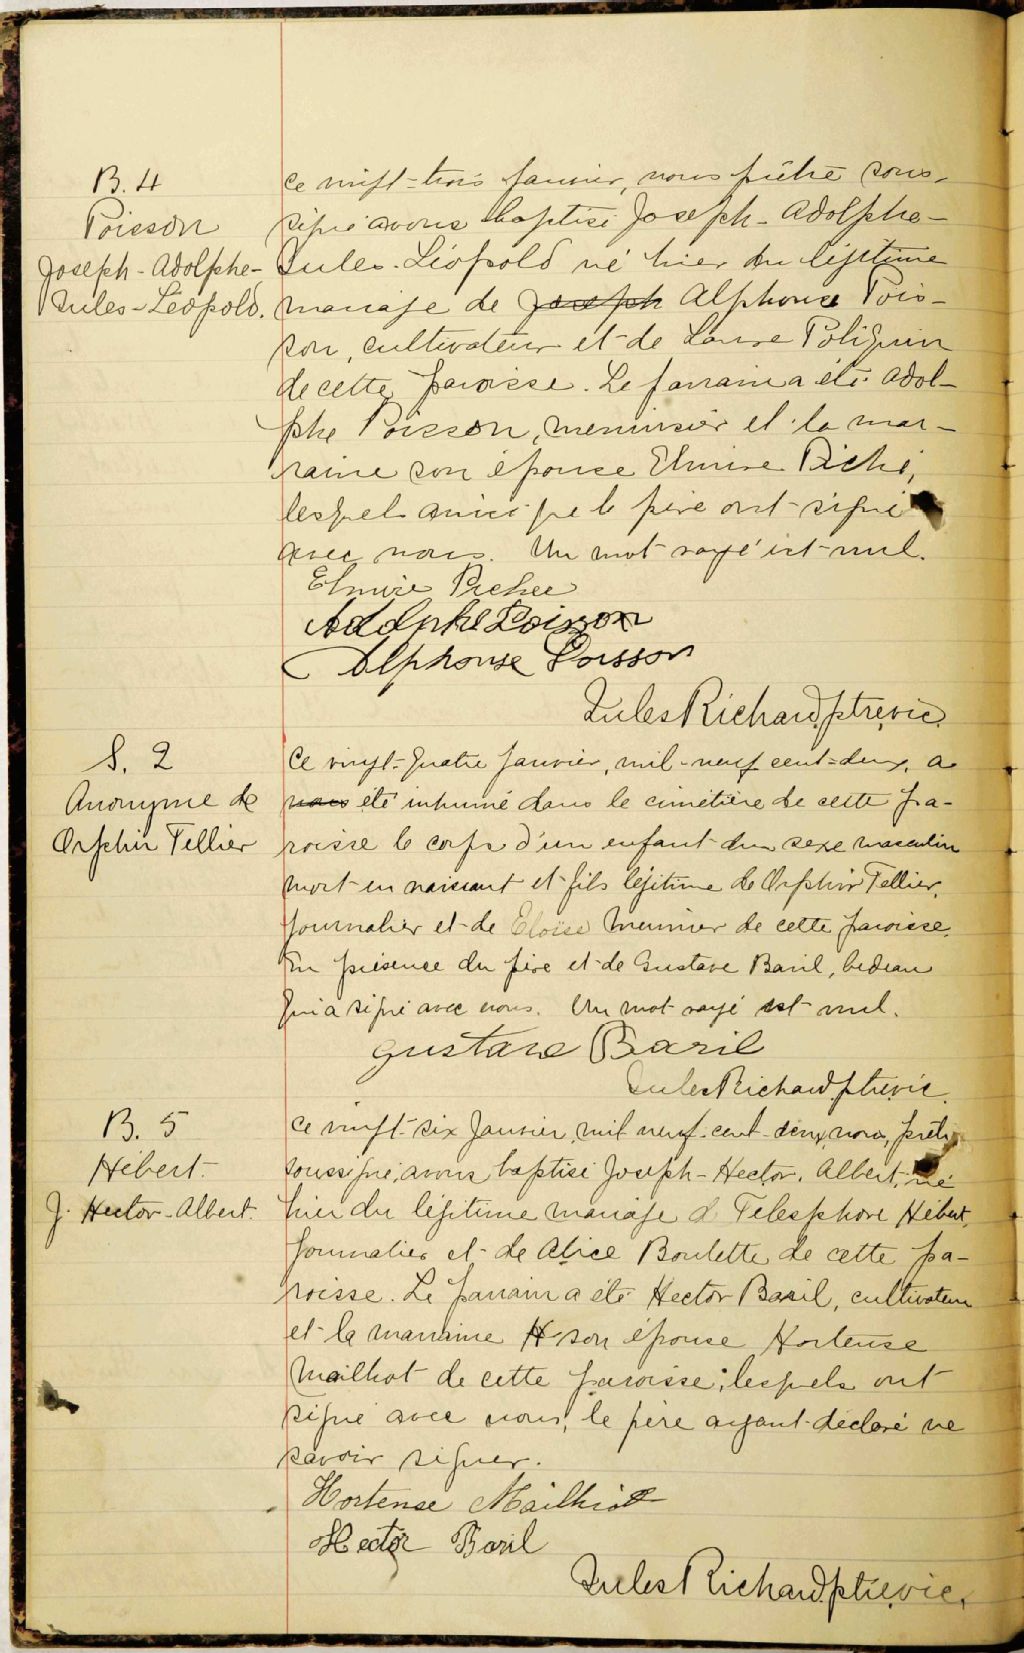 B. 4
Poisson
Joseph-Adolphe-
Jules-Léopold.
Ce vingt-trois janvier, nous prêtre sous-
signé avons baptisé Joseph-Adolphe-
Jules-Léopold né hier du légitime
mariage de Joseph Alphonse Pois-
son, cultivateur et de Laure Poliquin
de cette paroisse. Le parrain a été Adol-
phe Poisson, menuisier et la mar-
raine son épouse Elmire Piché,
lesquels ainsi que le père ont signé
avec nous. Un mot rayé est nul.
Elmire Pichée
Adolphe Poisson
Alphonse Poisson
Jules Richard, ptre, vic.
S. 2
Anonyme de
Orphir Tellier
Ce vingt-quatre janvier, mil-neuf cent-deux, a
nous été inhumé dans le cimetière de cette pa-
roisse le corps d'un enfant du sexe masculin
mort en naissant et fils légitime de Orphir Tellier,
journalier et de Eloïse Meunier de cette paroisse.
En présence du père et de Gustave Baril, bedeau
qui a signé avec nous. Un mot rayé est nul.
Gustave Baril
Jules Richard, ptre, vic.
B. 5
Hébert.
J. Hector-Albert.
Ce vingt-six Janvier, mil neuf-cent-deux, nous, prêtre
soussigné, avons baptisé Joseph-Hector-Albert, né
hier du légitime mariage de Télesphore Hébert,
journalier et de Alice Boulette de cette pa-
roisse. Le parrain a été Hector Baril, cultivateur
et la marraine H son épouse Hortense
Mailhot de cette paroisse; lesquels ont
signé avec nous, le père ayant déclaré ne
savoir signer.
Hortense Mailhiot
Hector Baril
Jules Richard, ptre, vic.